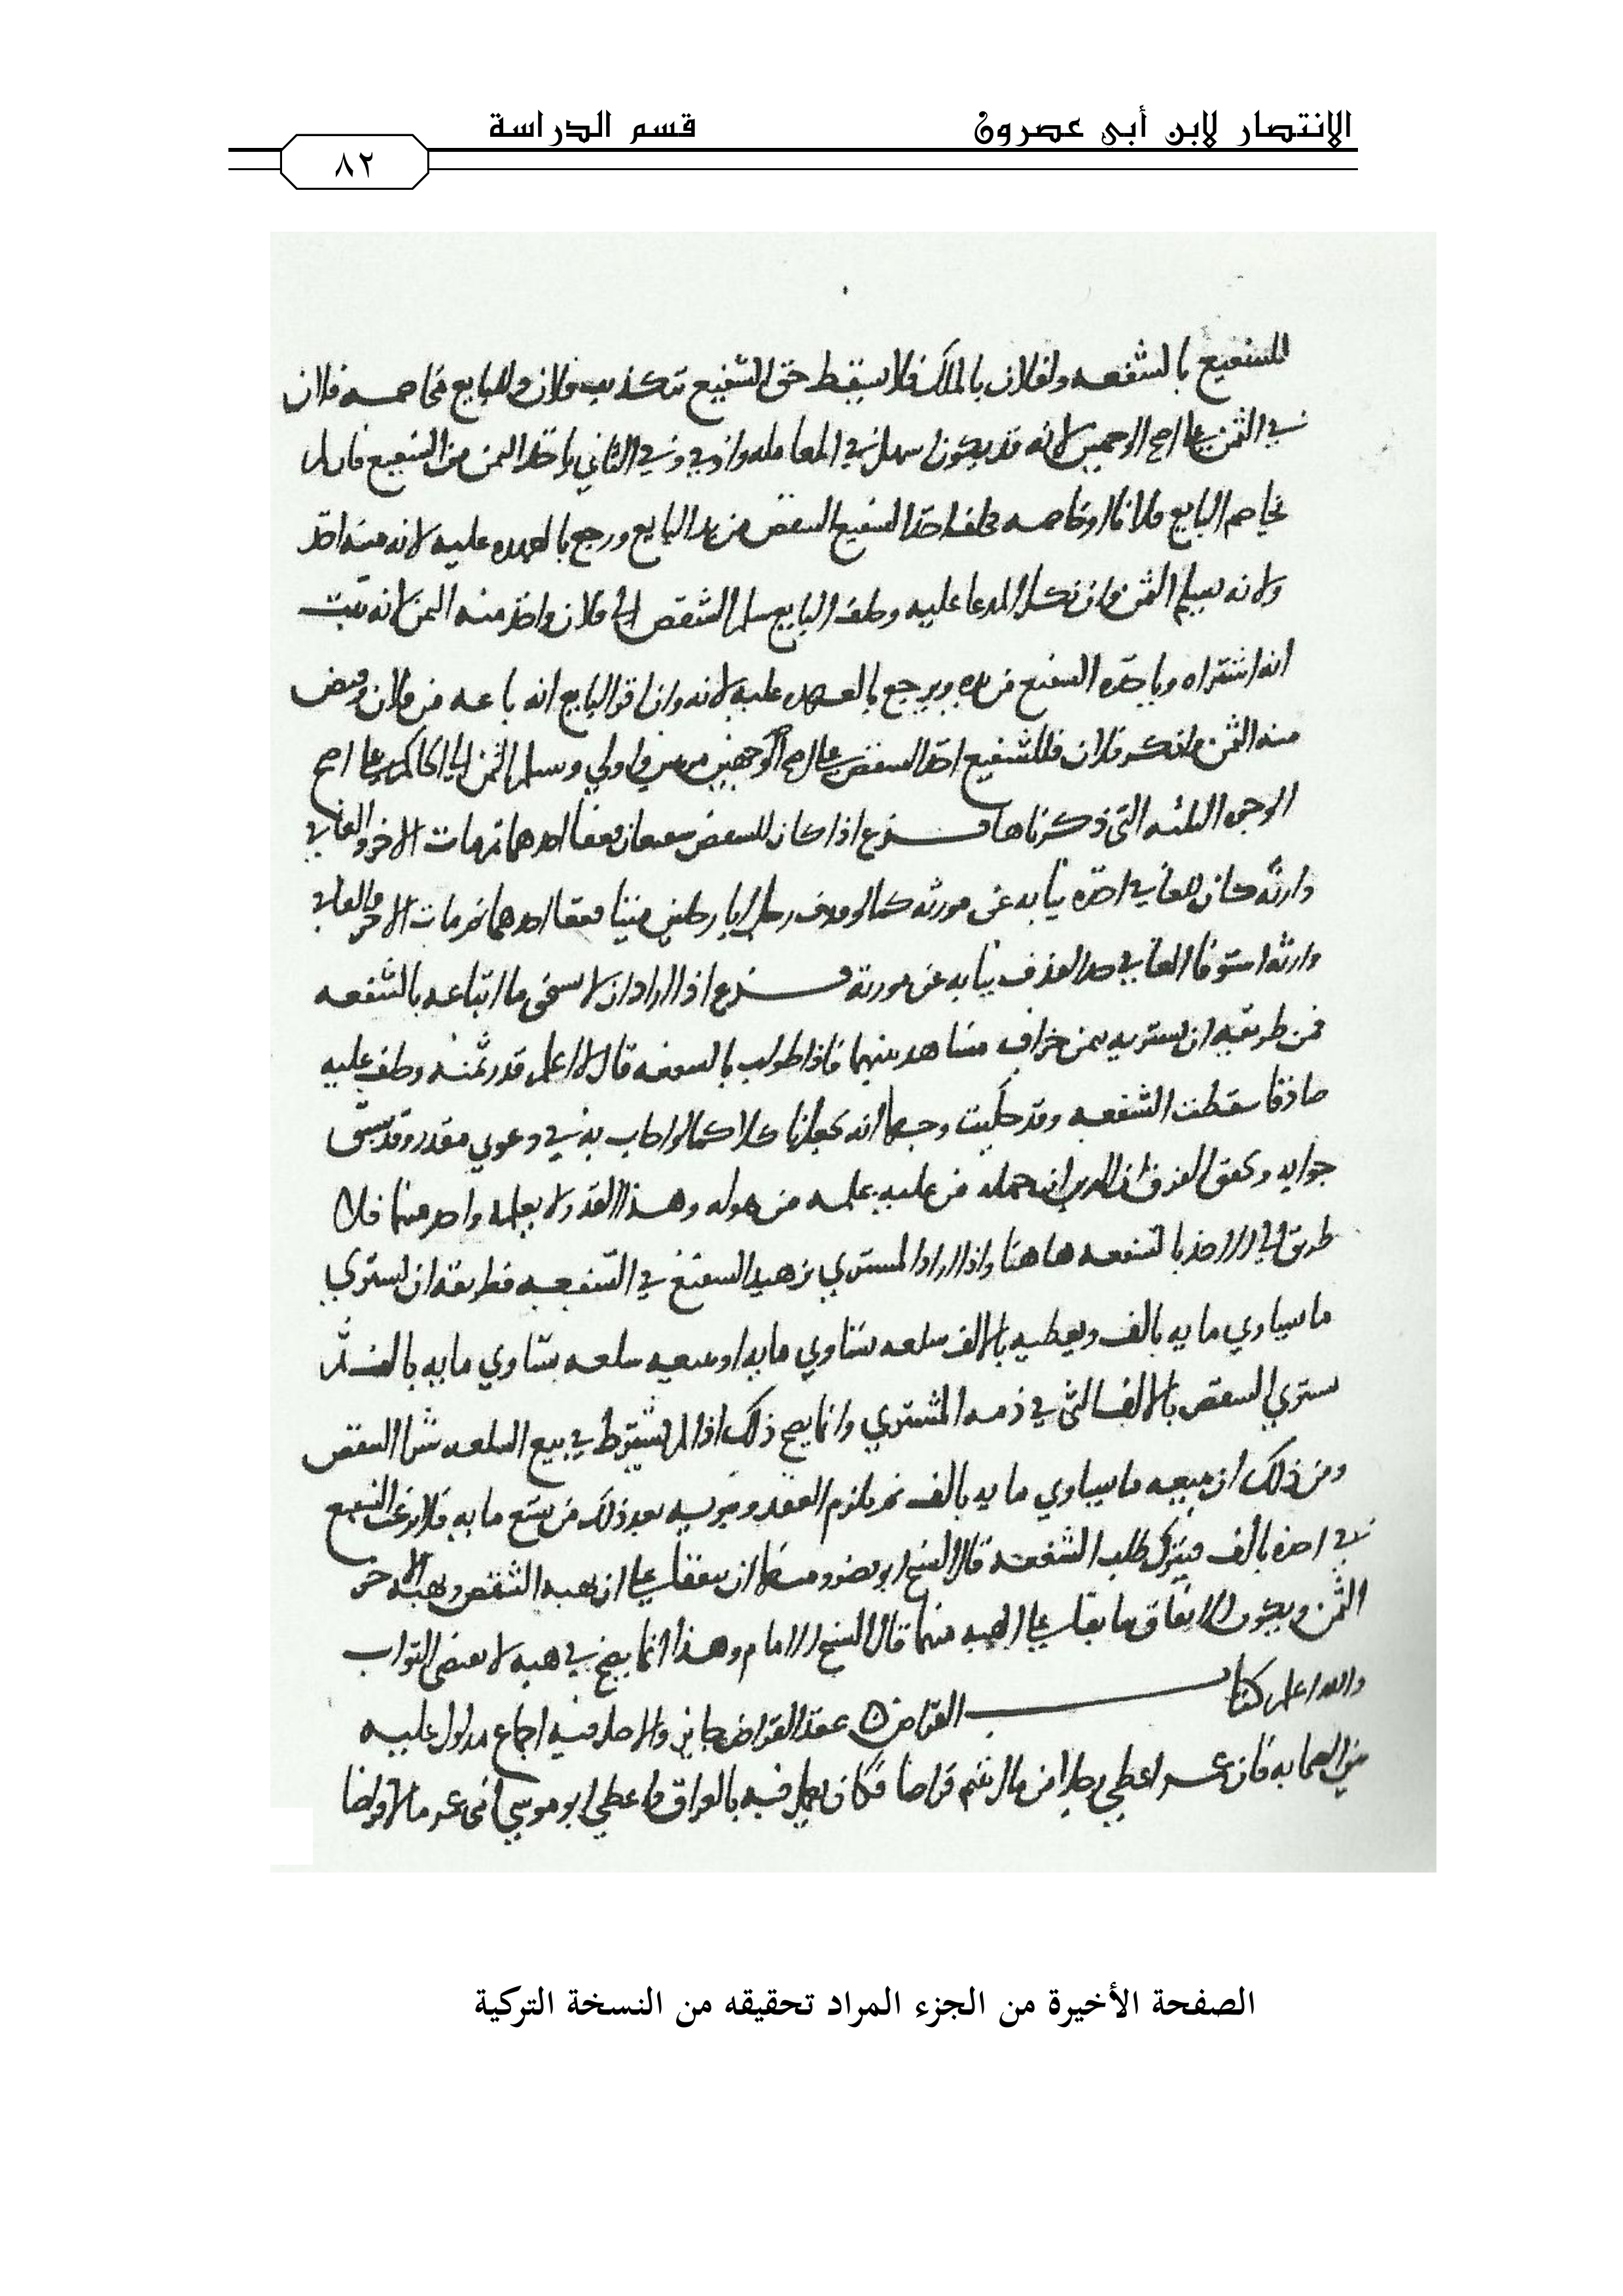 الانتصار لابن أبي عصرون
قسم الدراسة
٨٢
للشفيع بالشفعه ولفلان بالملك فلا يسقط حق الشفيع بتكذيب فلان وللبايع مخاصمه فلان
في الثمن على احد الوجهين لانه قد يكون اسهل في المعامله وفي الثاني ياخذ الثمن من الشفيع فان لم
يخاصم البايع فلانا او خاصمه فحلف اخذ الشفيع الشقص من يد البايع ورجع بالعهده عليه لانه منه اخذ
ولانه تسلم الثمن وان نكل المدعا عليه وحلف البايع سلم الشقص الى فلان واخذ منه الثمن لانه ثبت
انه اشتراه وياخذه الشفيع من يده ويرجع بالعهده عليه لانه وان اقر البايع انه باعه من فلان وقبض
منه الثمن وانكر فلان فللشفيع اخذ الشقص على احد الوجهين وسلم الثمن الى الحاكم على احد
الوجوه الثلثه التي ذكرناها فرع اذا كان للشقص شفيعان فعفا احدهما ثم مات الاخر والعافي
وارثه كان للعافي اخذه نيابه عن مورثه كما لو قذف رجل ابا رجلين ميتا فعفا احدهما ثم مات الاخر والعافي
وارثه استوفا العافي حد القذف نيابه عن مورثه فرع اذا اراد ان لا يستحق ما ابتاعه بالشفعه
فمن طريقه ان يشتريه بثمن جزاف مشاهد بينهما فاذا طولب بالشفعه قال لا اعلم قدر ثمنه وحلف عليه
صادقا سقطت الشفعه وقد حكيت وجها انه يجعل ناكلا كما لو اجاب به في دعوى مقدر وقد سبق
جوابه وتحقق الفرق ان الدين جهله من عليه علمه من هو له وهذا القدر لا يعلمه واحد منهما فلا
طريق الى الاخذ بالشفعه هاهنا واذا اراد المشتري تزهيد الشفيع في الشفعه فطريقه ان يشتري
ما يساوي مايه بالف ويعطيه بالالف سلعه تساوي مايه او يبيعه سلعه تساوي مايه بالف ثم
يشتري الشقص بالالف التي في ذمه المشتري وانما يصح ذلك اذا لم يشترط في بيع السلعه شرا الشقص
ومن ذلك ان يبيعه ما يساوي مايه بالف ثم يلزم العقد ويبريه بعد ذلك من تسع مايه فلا يرغب الشفيع
في اخذه بالف فيترك طلب الشفعه قال الشيخ ابو نصر ومنها ان يتفقا على ان يهبه الشقص ويهبه الاخر
الثمن ويكون الاتفاق سابقا على الهبه منهما قال الشيخ الامام وهذا انما يصح في هبه لا تقتضي الثواب
والله اعلم كتاب القراض عقد القراض جايز والاصل فيه اجماع مدلول عليه
من الصحابه فان عمر اعطى رجلا من مال يتيم قراضا فكان يعمل فيه بالعراق واعطى ابو موسى ابني عمر مالا قراضا
الصفحة الأخيرة من الجزء المراد تحقيقه من النسخة التركية